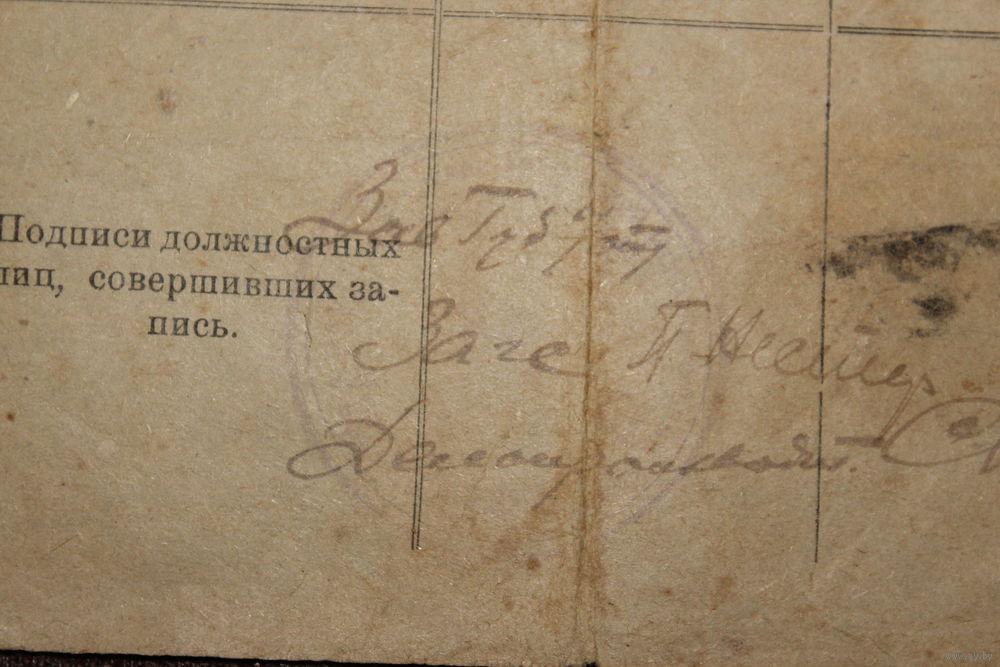 Подписи должностных
лиц, совершивших за-
пись.
Зав Губ
Загс П Нестер
Делопроизводит.